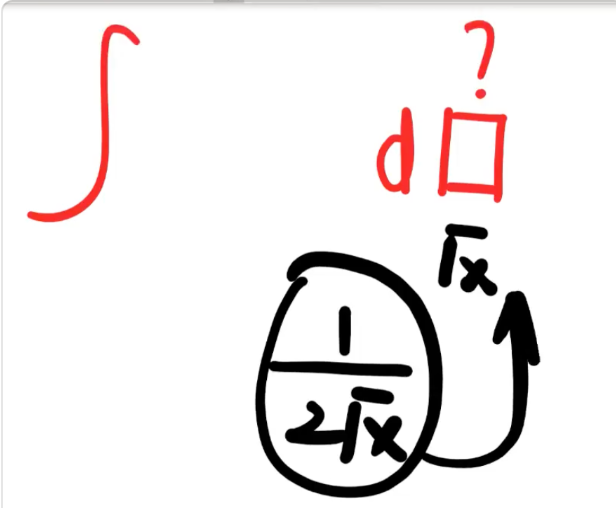 ∫ d□ ?
√x
1
2√x